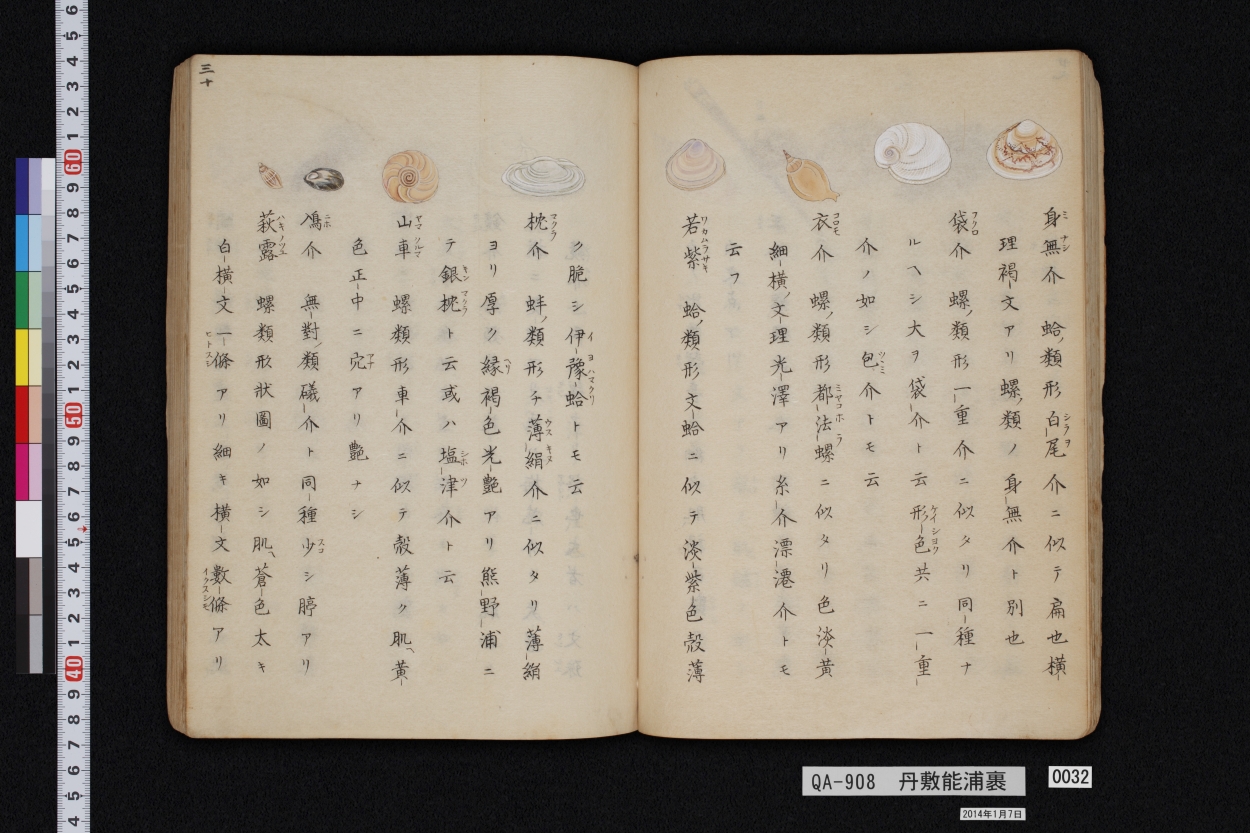 身無介 蛤ノ類形白尾介ニ似テ扁也横
理褐文アリ螺ノ類ノ身無介ト別也
袋介 螺ノ類形一重介ニ似タリ同種ナ
ルヘシ大ヲ袋介ト云形色共ニ一重
介ノ如シ包介トモ云
衣介 螺ノ類形都法螺ニ似タリ色淡黄
細横ノ文理光澤アリ糸介漂濹介トモ
云フ
若紫 蛤ノ類形文蛤ニ似テ淡紫色殻薄
三十
ク脆シ伊豫蛤トモ云
枕介 蚌ノ類形チ薄絹介ニ似タリ薄絹
ヨリ厚ク縁褐色光艶アリ熊野浦ニ
テ銀枕ト云或ハ塩津介ト云
山車 螺類形車介ニ似テ殻薄ク肌黄
色正中ニ穴アリ艶ナシ
鳰介 無對ノ類礒介ト同種少シ脝アリ
萩露 螺類形状圖ノ如シ肌蒼色太キ
白横文一條アリ細キ横文數條アリ
QA-908 丹敷能浦裹
0032
2014年1月7日